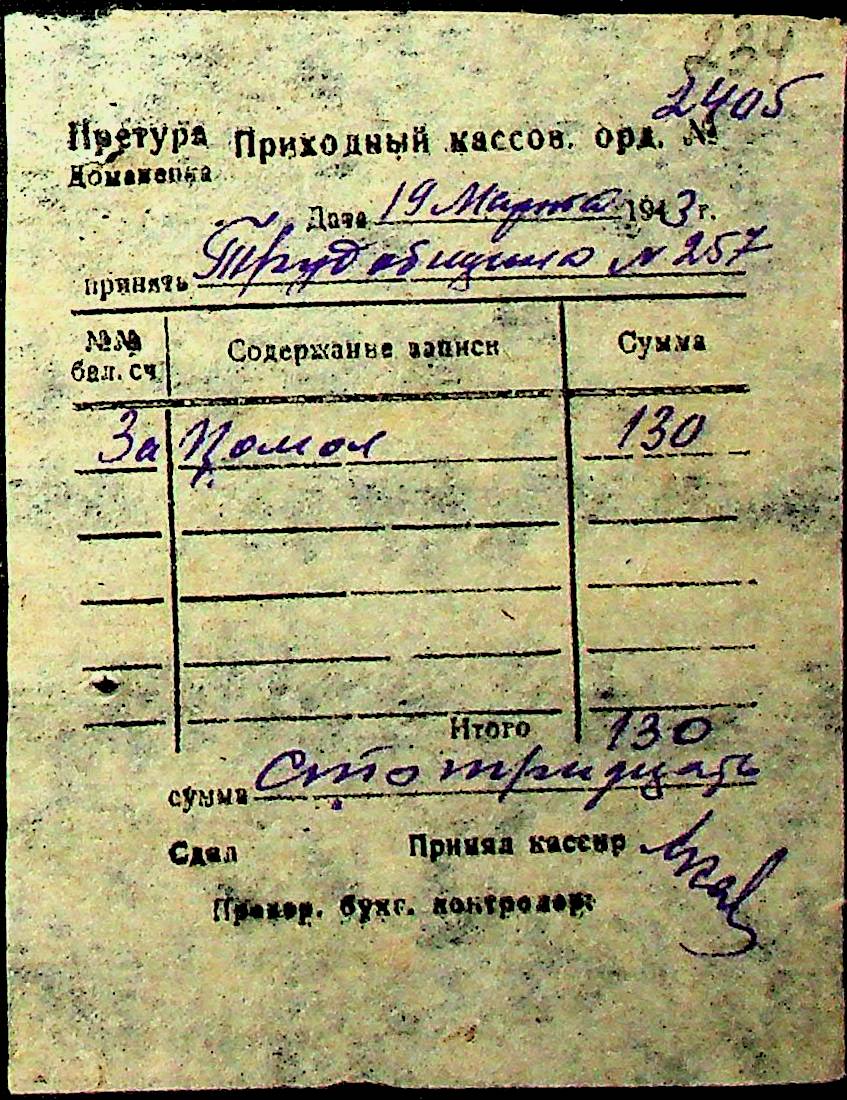 234
2405
Претура Приходный кассов. орд. №
Доманевка
Дата 19 Марта 1943 г.
принять Трудобщина № 257
№№ бал. сч Содержание записи Сумма
За помол 130
Итого 130
сумма Сто тридцать
Сдал Принял кассир
Провер. бухг. контролер: